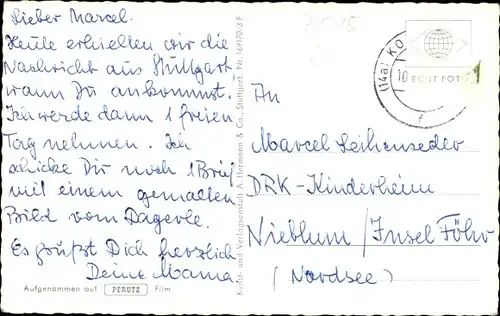 Lieber Marcel.
Heute erhielten wir die
Nachricht aus Stuttgart
wann Du ankommst.
Ich werde dann 1 freien
Tag nehmen. Ich
schicke Dir noch 1 Brief
mit einem gemalten
Bild vom Dagerle.
Es grüßt Dich herzlich
Deine Mama.
Aufgenommen auf PERUTZ Film
Kunst- und Verlagsanstalt A. Hermann & Co., Stuttgart.
(14a) KO
10
ECHT FOTO
f
An
Marcel Leihenseder
DRK-Kinderheim
Nieblum / Insel Föhr
(Nordsee)